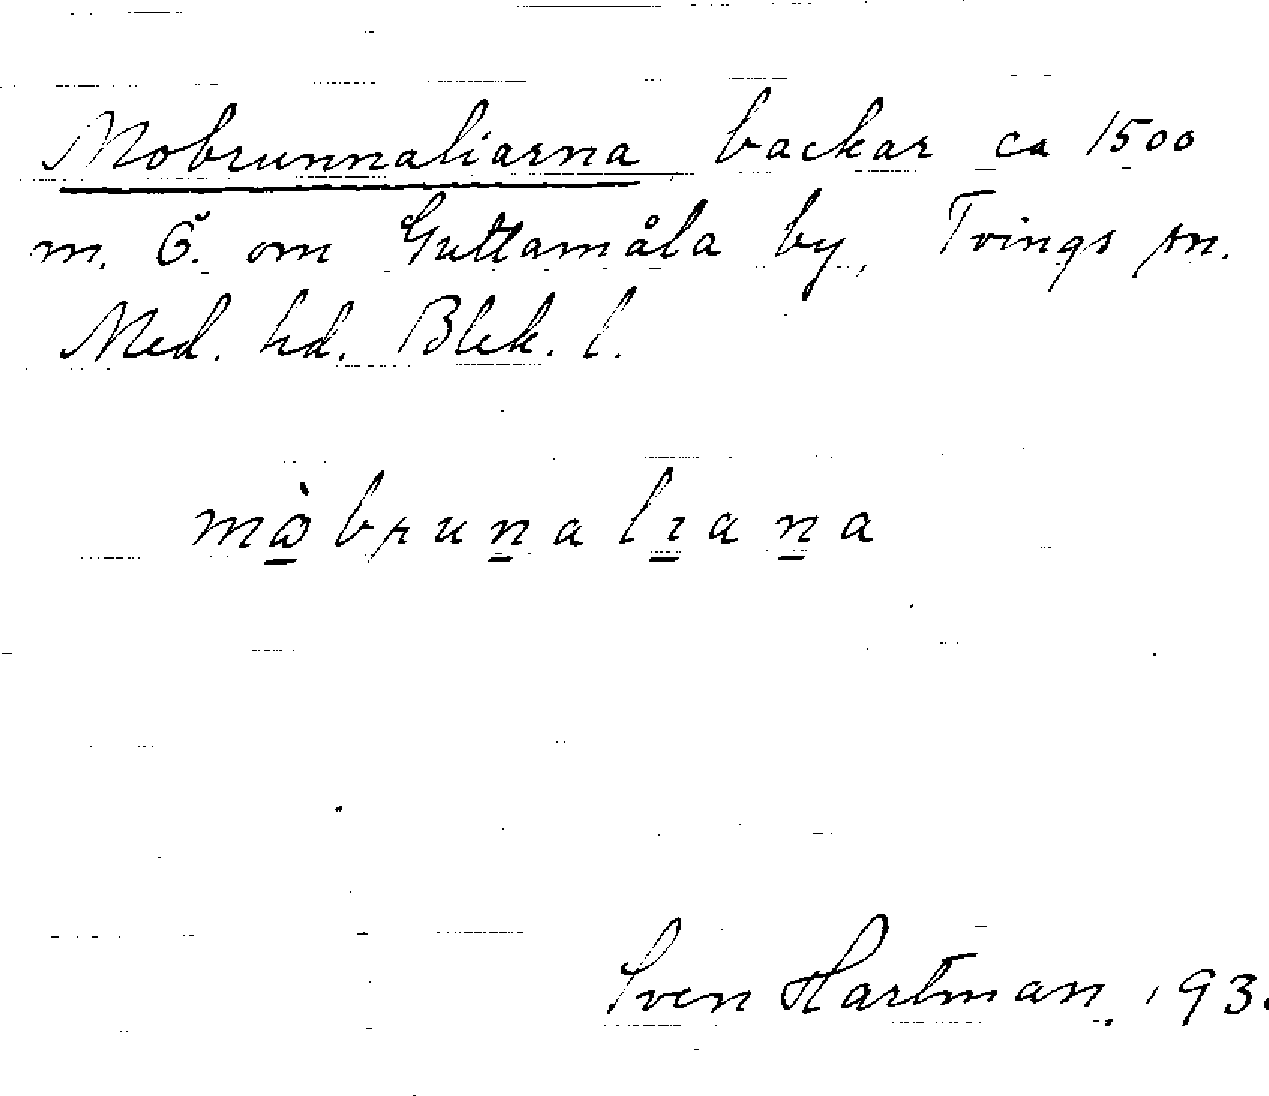 Mobrunnaliarna, backar ca 1500
m. Ö. om Guttamåla by, Tvings sn.
Med. hd. Blek. l.
mὼbrunalıana
Sven Hartman. 193